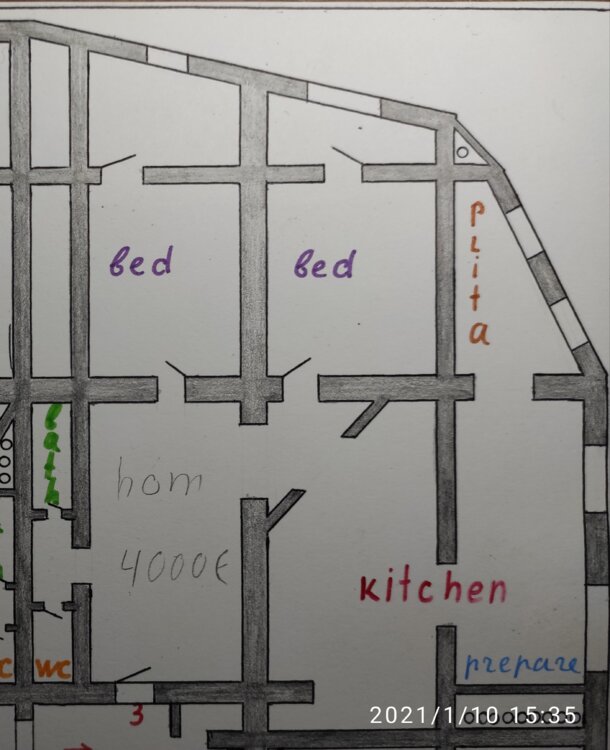 bed
bed
plita
bath
hom
4000€
kitchen
wc
prepare
3
2021/1/10 15:35